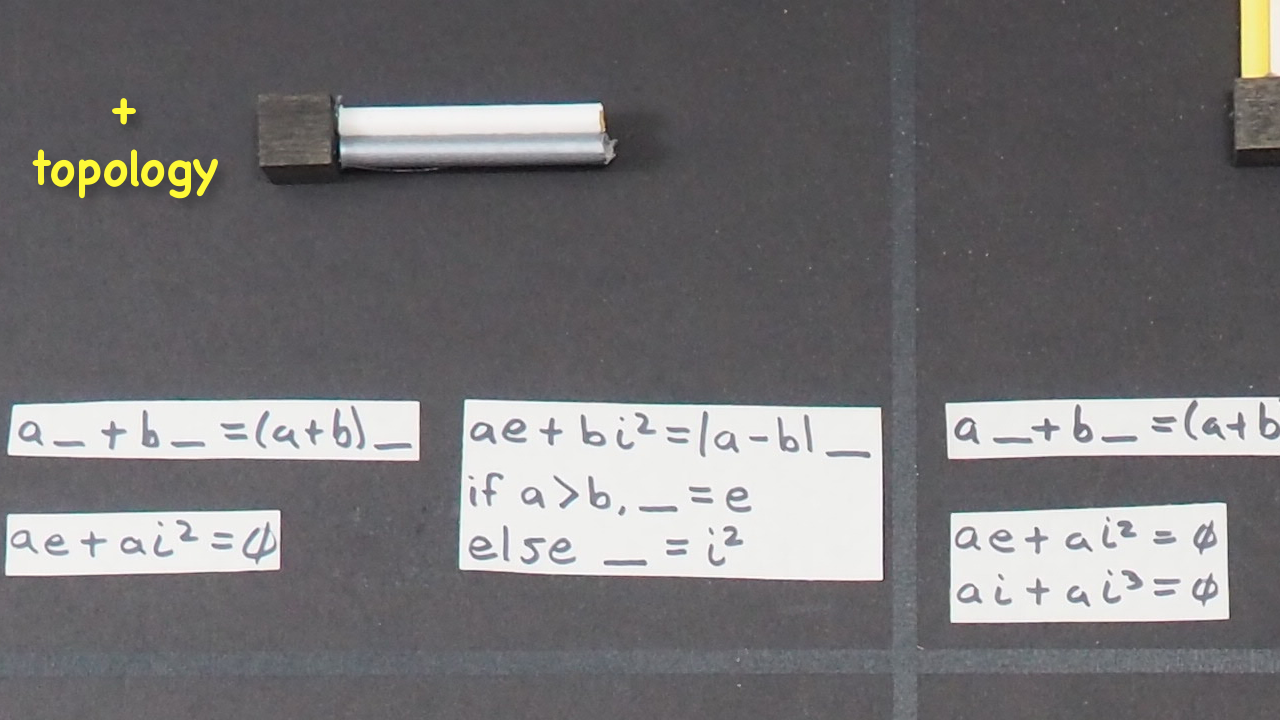 +
topology
a _ + b _ = (a+b) _
ae + ai² = φ
ae + bi² = |a - b| _
if a > b, _ = e
else _ = i²
a _ + b _ = (a+b
ae + ai² = φ
ai + ai³ = φ